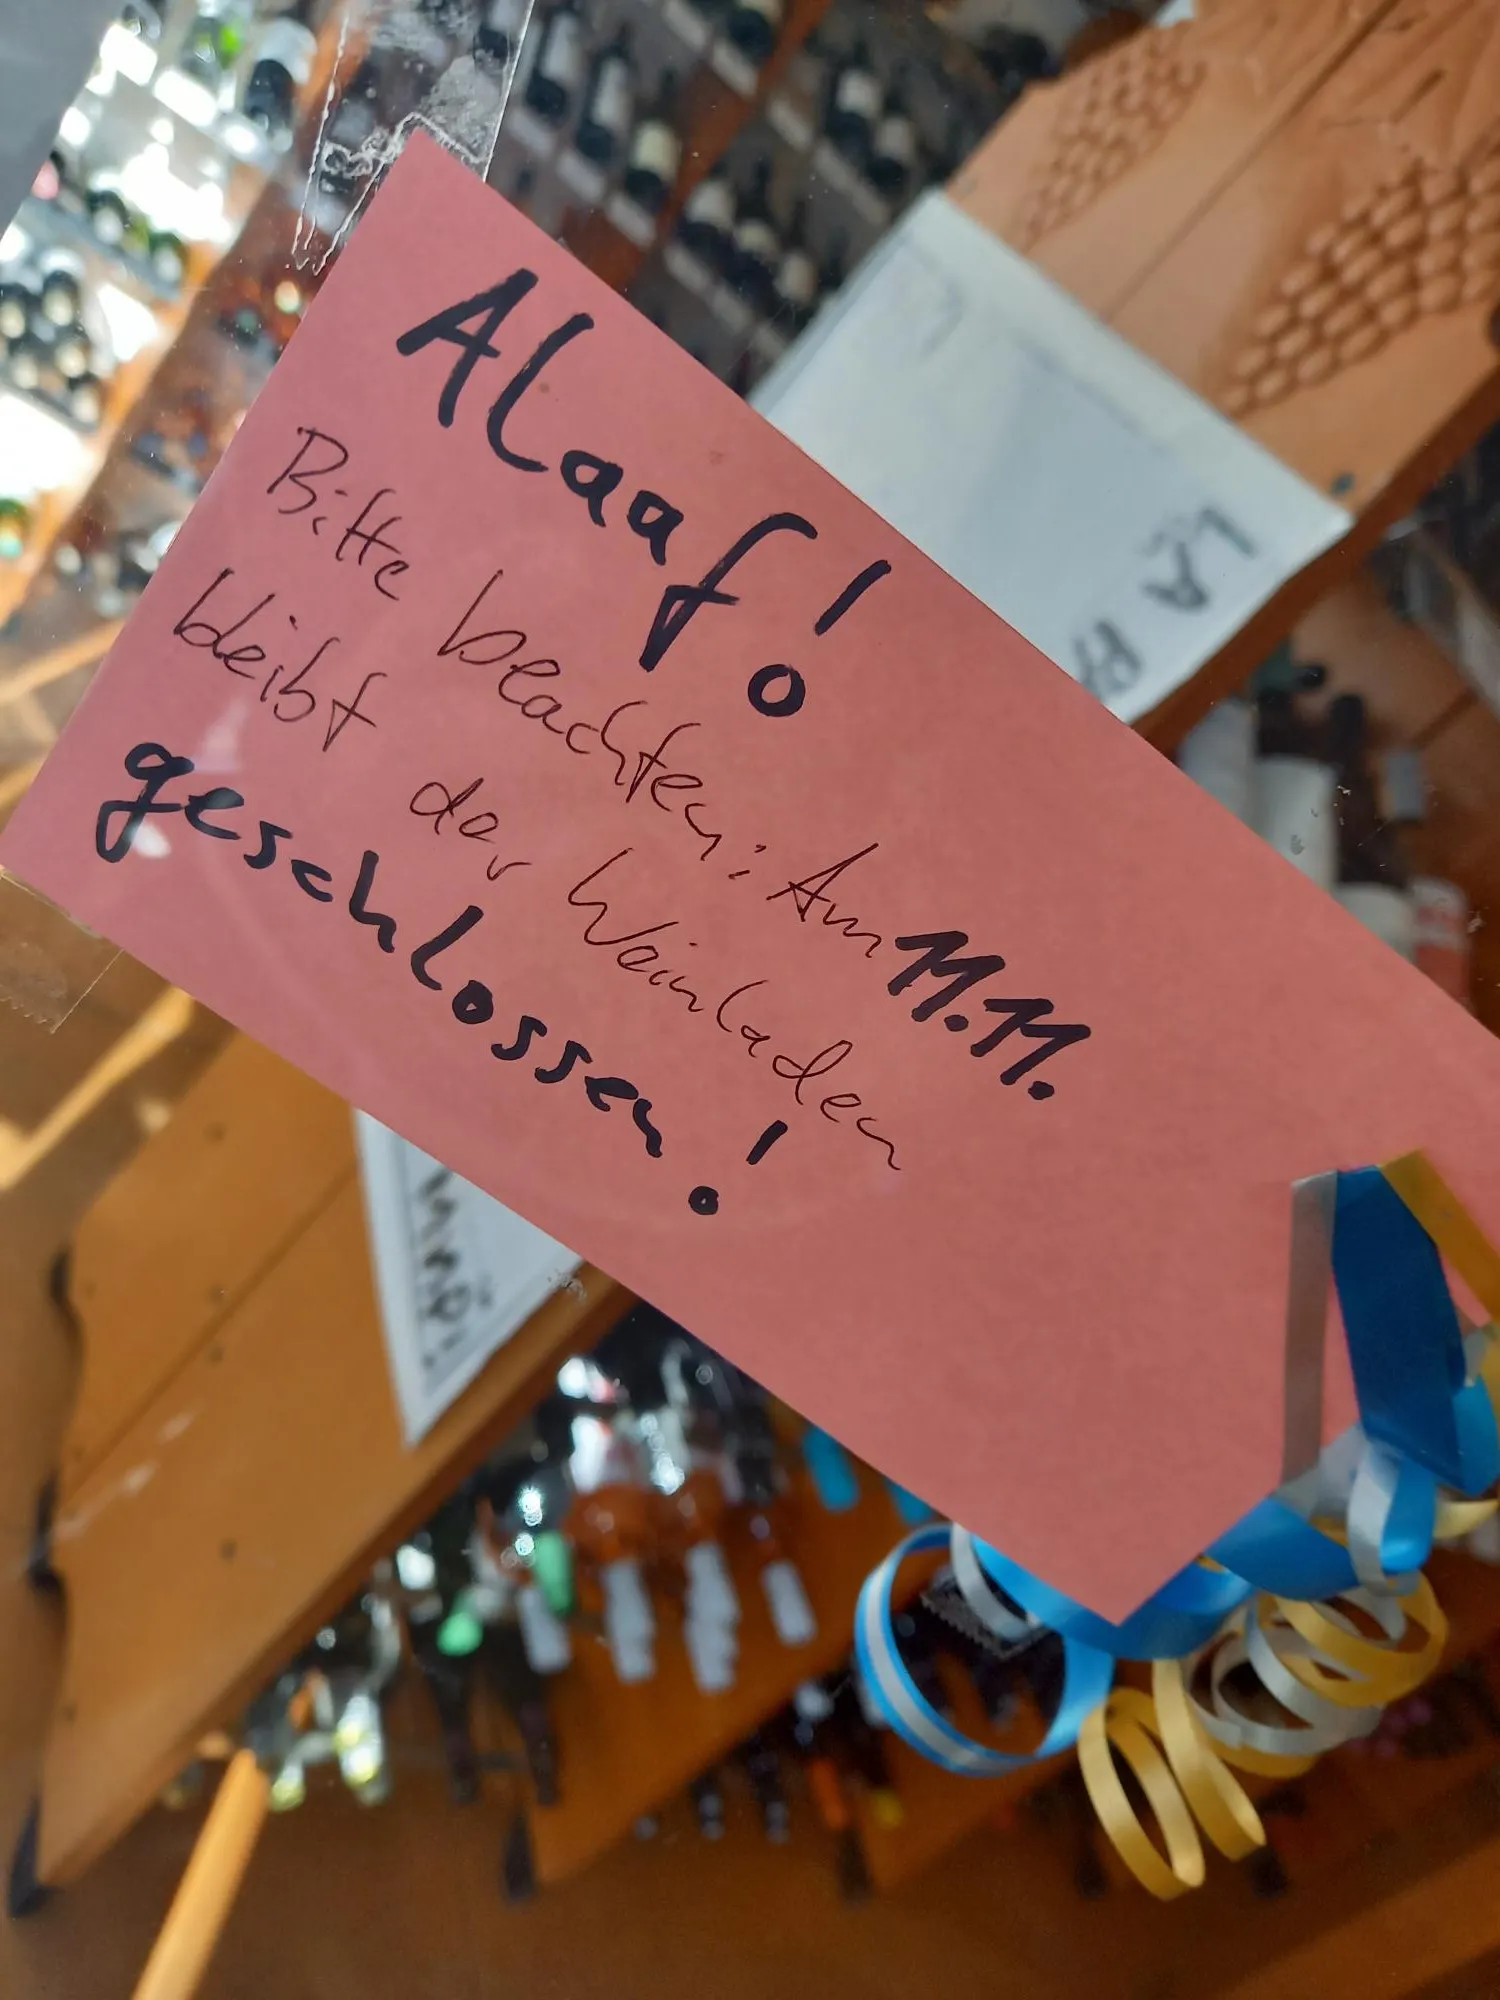 Alaaf!
Bitte beachten: Am 11.11.
bleibt der Weinladen
geschlossen!
LA